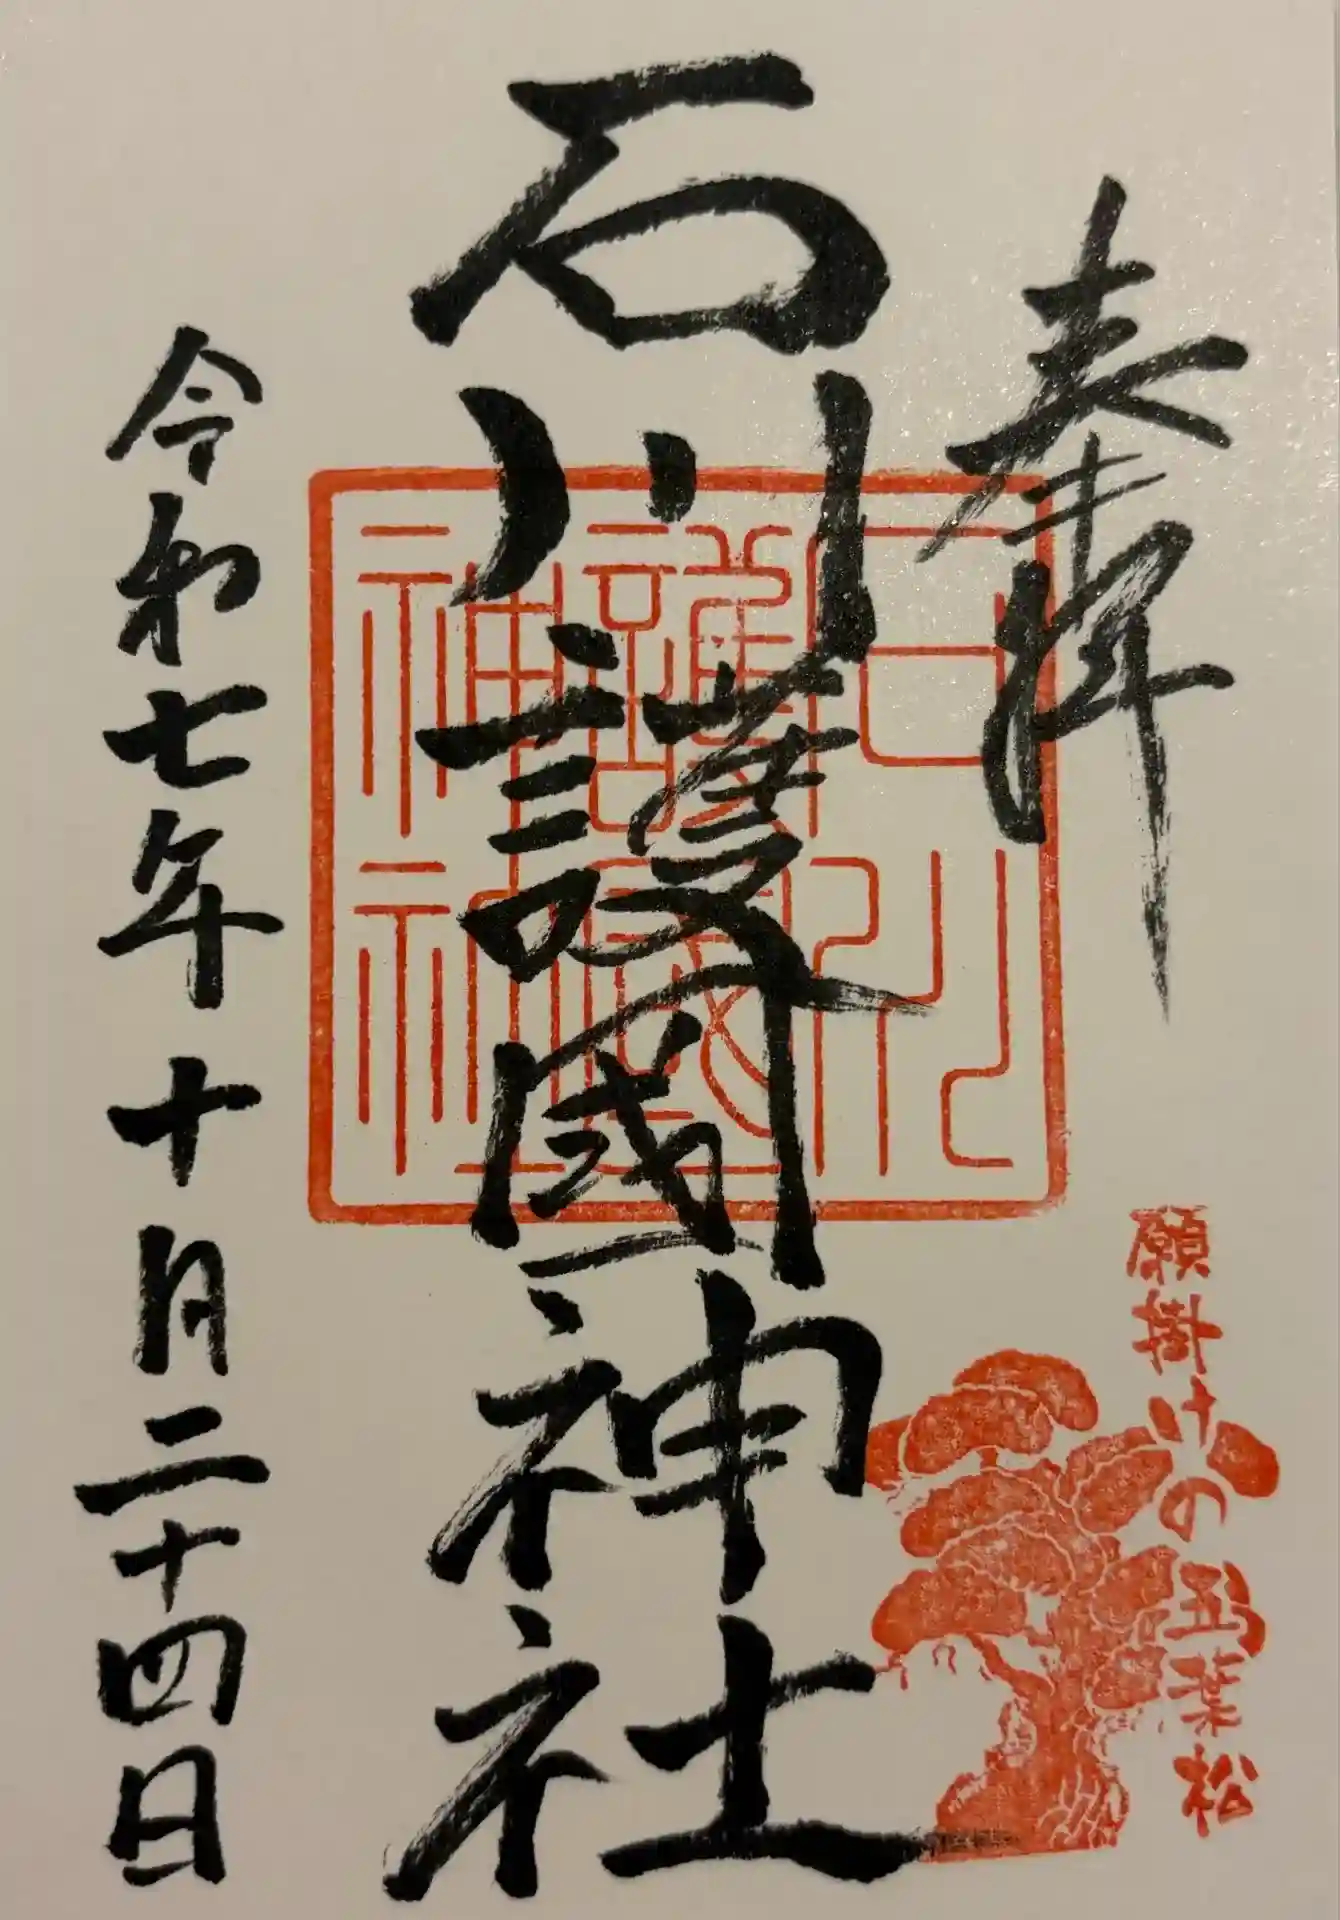 奉拝
石川護國神社
石川護國神社
願掛けの五葉松
令和七年十月二十四日